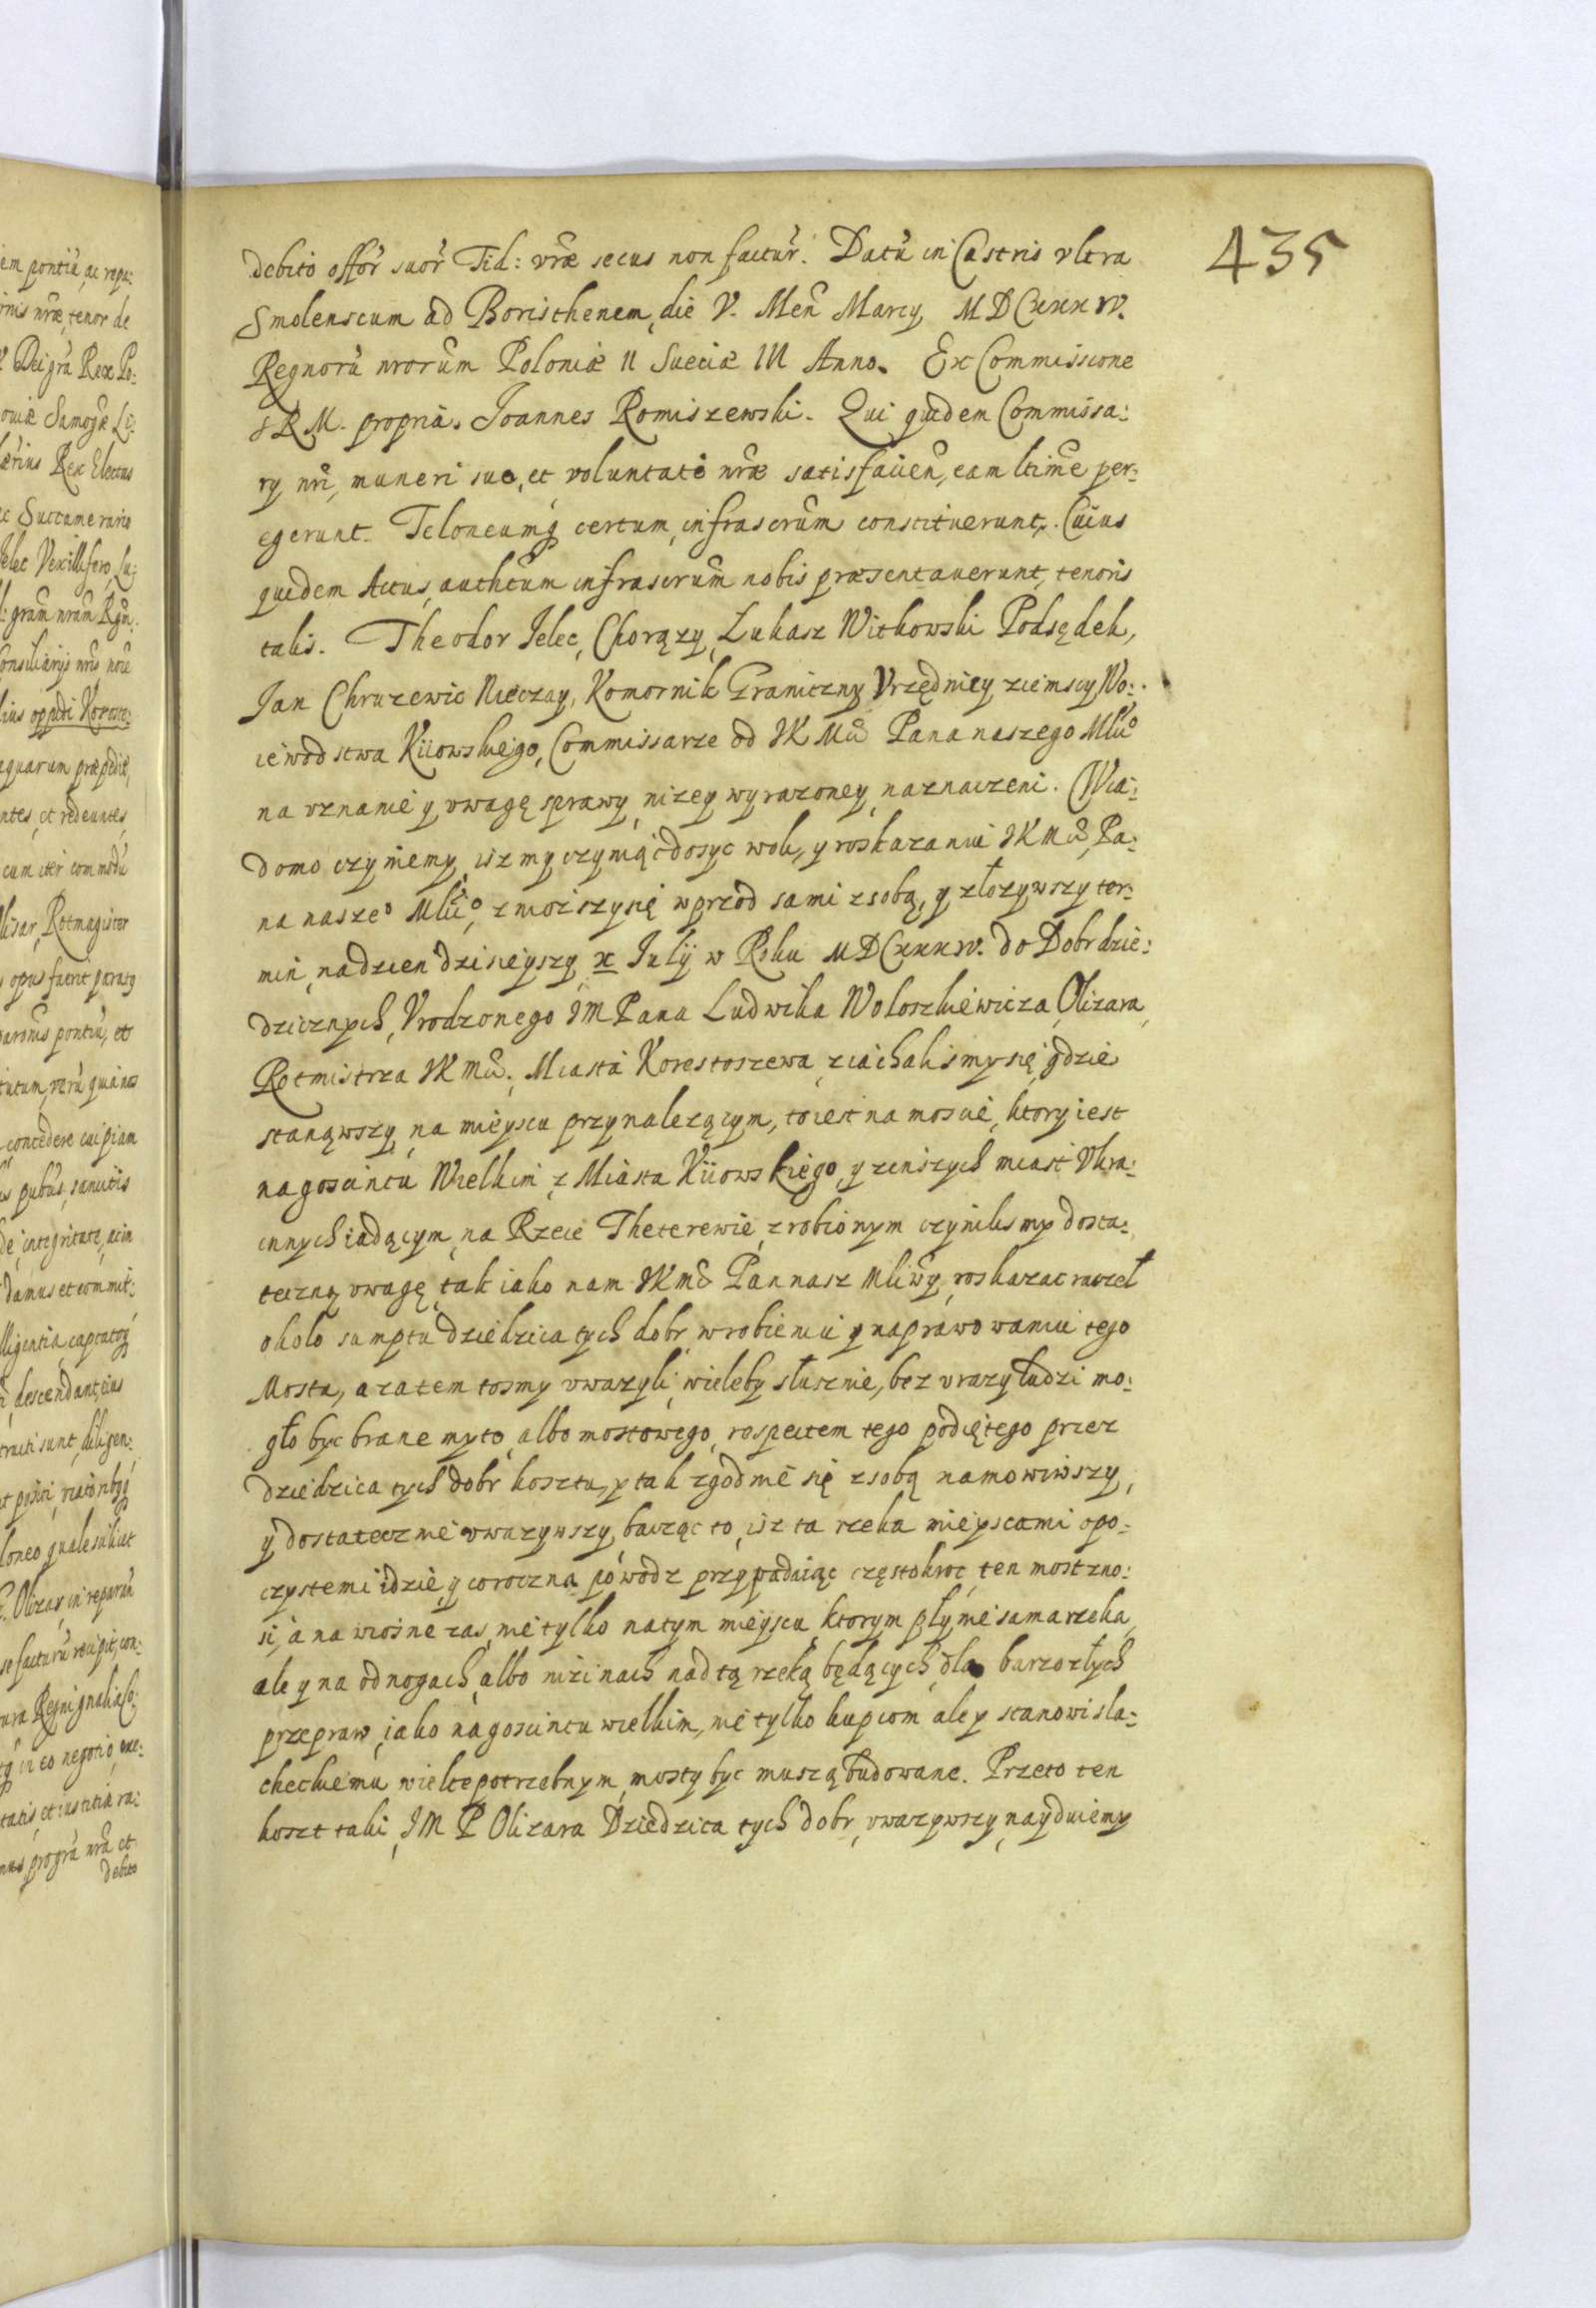 435
debito offor̃ suor̃ Fid: vr̃æ secus non factur̃. Datũ in Castris vltra
Smolenscum ad Boristhenem, die V. Men̄ Marcy, MDCXXXIV.
Regnorũ nrorum Poloniæ II Sueciæ III Anno. Ex Commissione
SRM. propria. Joannes Romiszewski. Qui quidem Commissa:
ry nri, muneri suo, et voluntati nræ satisfacien, eam ltime per:
egerunt. Teloneumq certum, infrascrum constituerunt. Cuius
quidem Actus, authcum infrascrum nobis præsentauerunt, tenoris
talis. Theodor Ielec, Chorązy, Łukasz Witkowski Podsędek,
Jan Chruzewic Nieczay, Komornik Graniczny Vrzędnicy ziemscy Wo:
iewodstwa Kiiowskiego, Commissarze od JKMci Pana naszego Młũo
na vznanie y vwagę sprawy, nizey wyrazoney, naznaczeni. Wia:
domo czyniemy, isz my czyniąc dosyc woli, y roskazaniu JKMci, Pa:
na nasze⁰ Młũo, zniozszy się wprzod sami z sobą, y złozywszy ter:
min, na dzien dzisieyszy X Iulij w Roku MDCXXXIV. do Dobr dzie:
dzicznych, Vrodzonego JM Pana Ludwika Woloszkiewicza, Olizara,
Rotmistrza JKMci. Miasta Korestoszewa, ziachalismy się, gdzie
stanąwszy, na mieyscu przynalezącym, to iest na moscie, ktory iest
na goscincu Wielkim, z Miasta Kiiowskiego, y z inszych miast Vkra:
innych iadącym, na Rzece Theterewie, zrobionym czynilismy dosta:
teczną vwagę, tak iako nam JKMc Pan nasz Młiwy, roskazac raczeł
około sumptu dziedzica tych dobr, w robieniu y naprawowaniu tego
Mostu, a zatem tosmy vwazyli, wieleby słusznie, bez vrazy ludzi mo:
gło byc brane myto, albo mostowego, respectem tego podiętego przez
dziedzica tych dobr kosztu, y tak zgodnie się z sobą namowiwszy,
y dostatecznie vwazywszy, bacząc to, isz ta rzeka mieyscami opo:
czystemi idzie, y coroczna powodz przypadaiąc częstokroc, ten most zno:
si, a na wiosne zas, nie tylko na tym mieyscu, ktorym płynie sama rzeka,
ale y na odnogach, albo nizinach nad tą rzeką będących, dla barzo złych
przepraw, iako na goscincu wielkim, nie tylko kupcom ale y stanowi sla:
checkiemu wielce potrzebnym, mosty byc muszą budowane. Przeto ten
koszt taki, JM P Olizara Dziedzica tych dobr, vwazywszy, nayduiemy